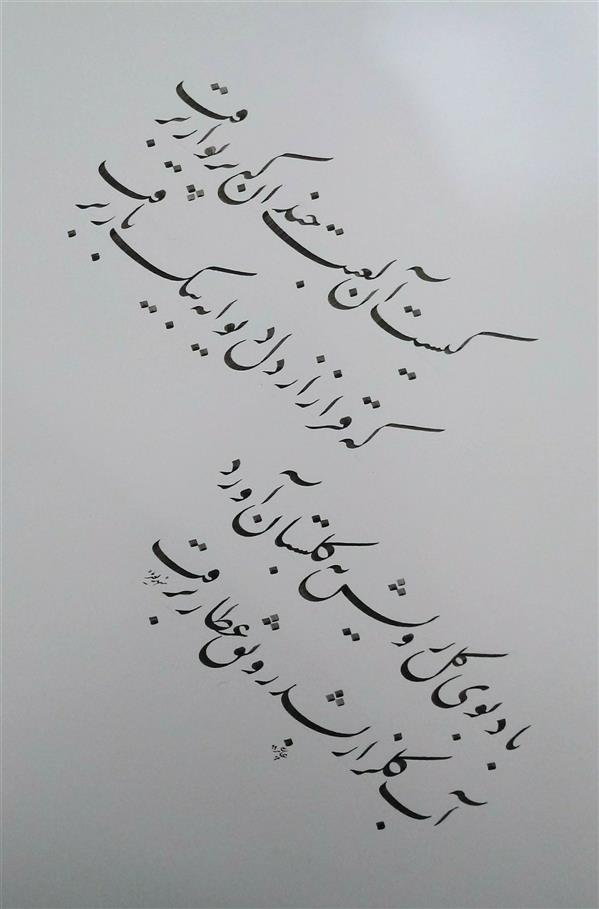 کیست آن لعبت خندان که پریوار برفت
که قرار از دل دیوانه به یکبار برفت
باد بوی گل رویش به گلستان آورد
آب گلزار بشد رونق عطار برفت